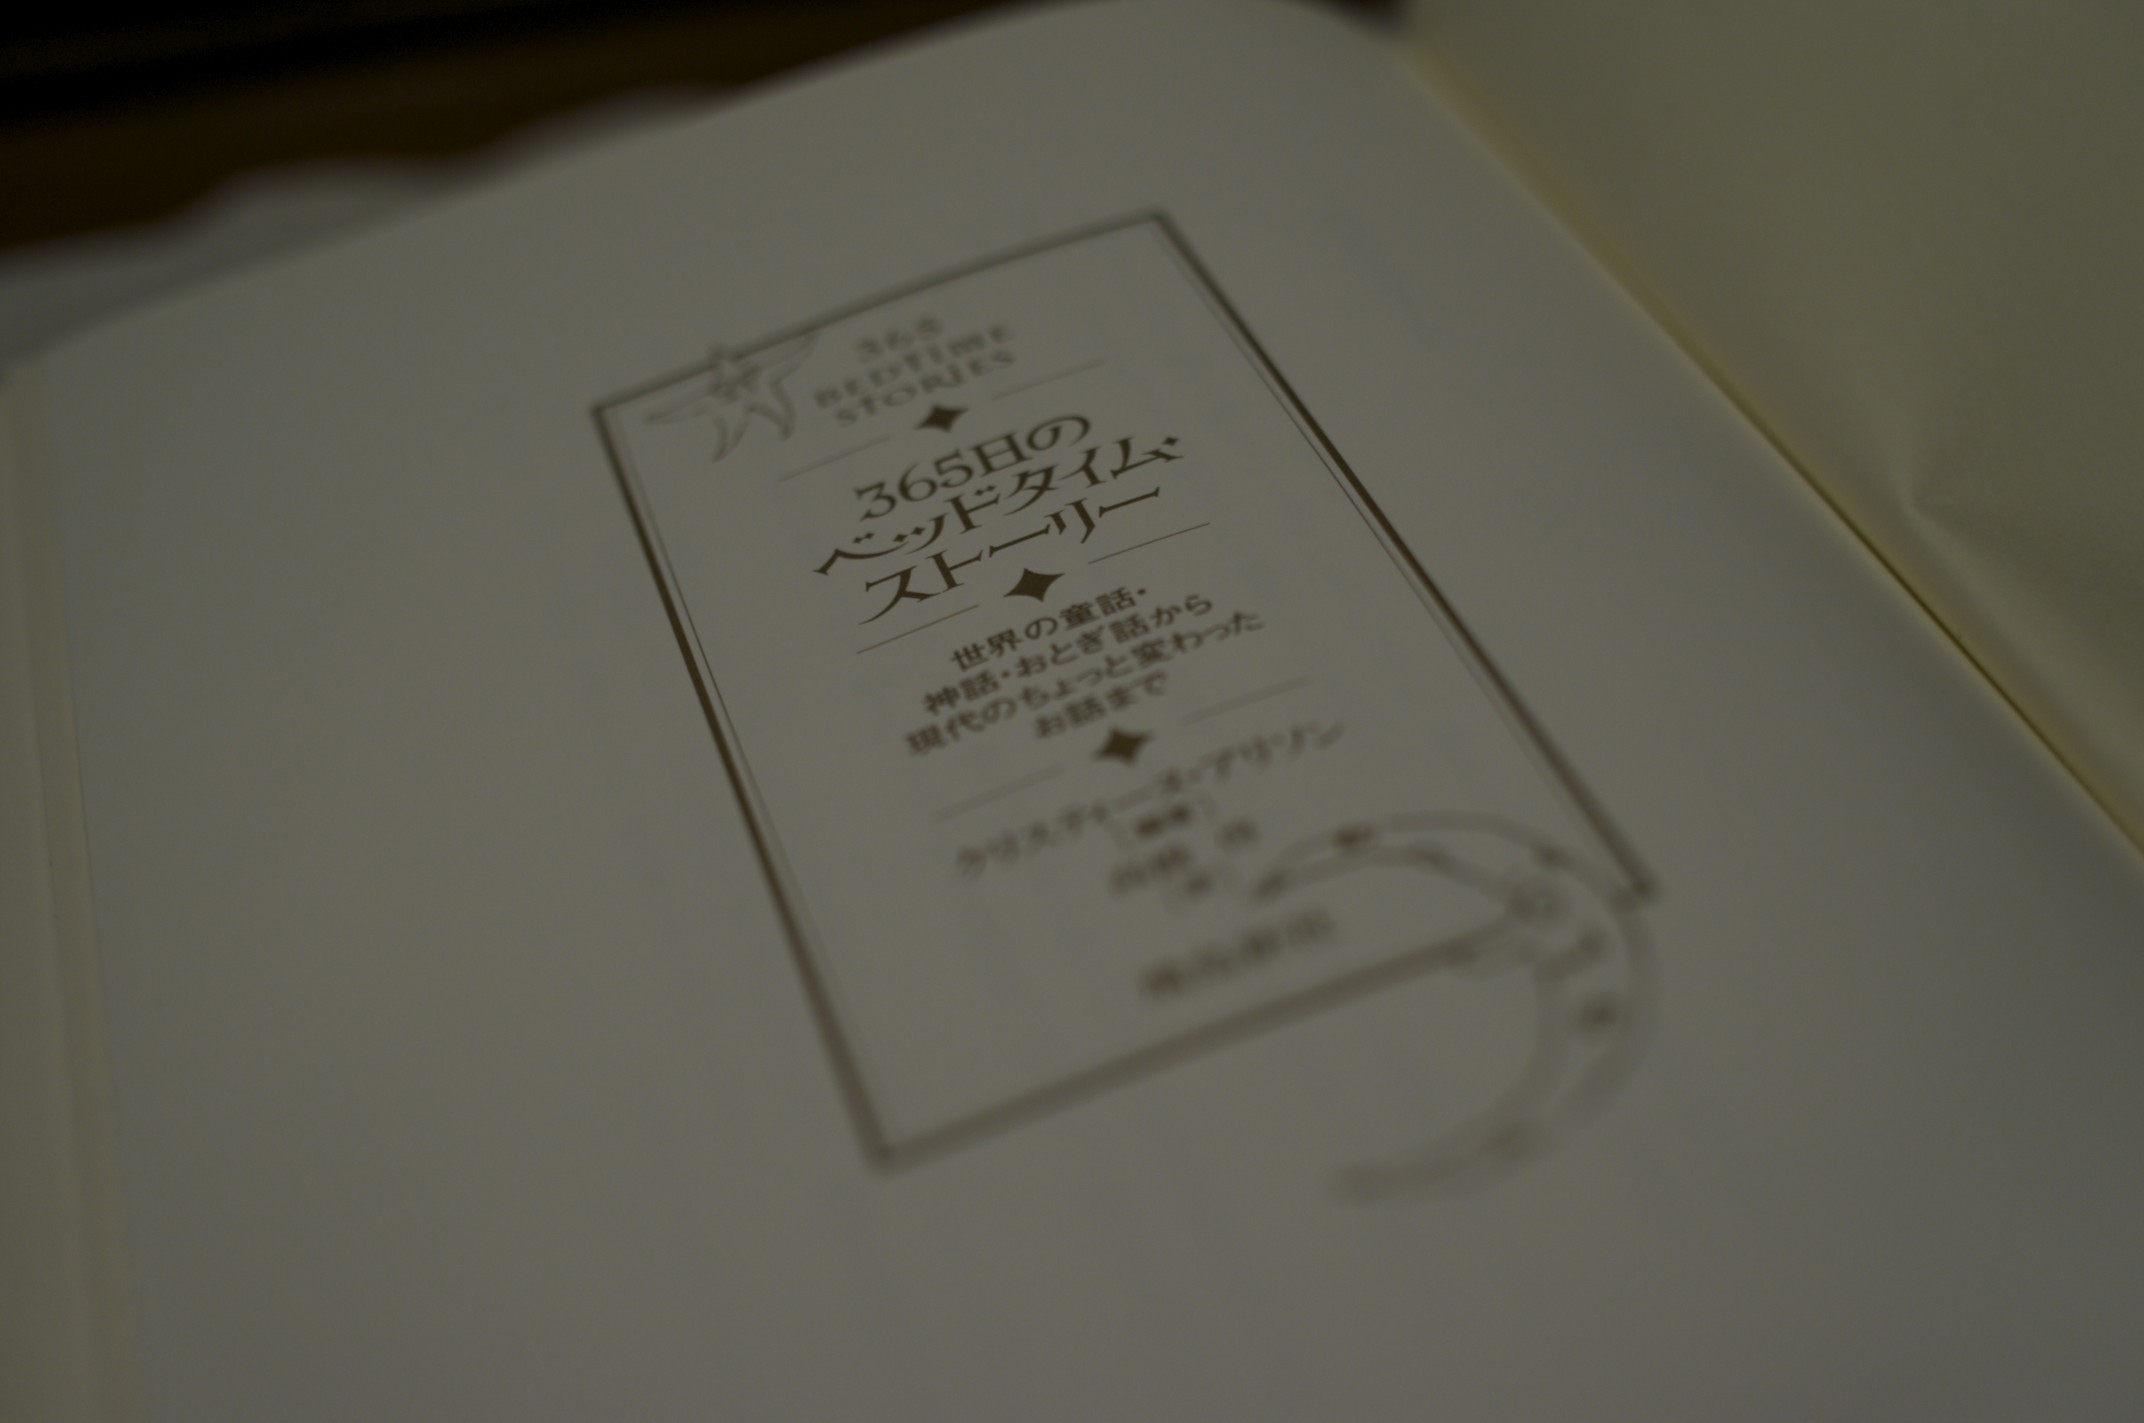 365
BEDTIME
STORIES
365日の
ベッドタイム・
ストーリー
世界の童話・
神話・おとぎ話から
現代のちょっと変わった
お話まで
クリスティーヌ・アリソン